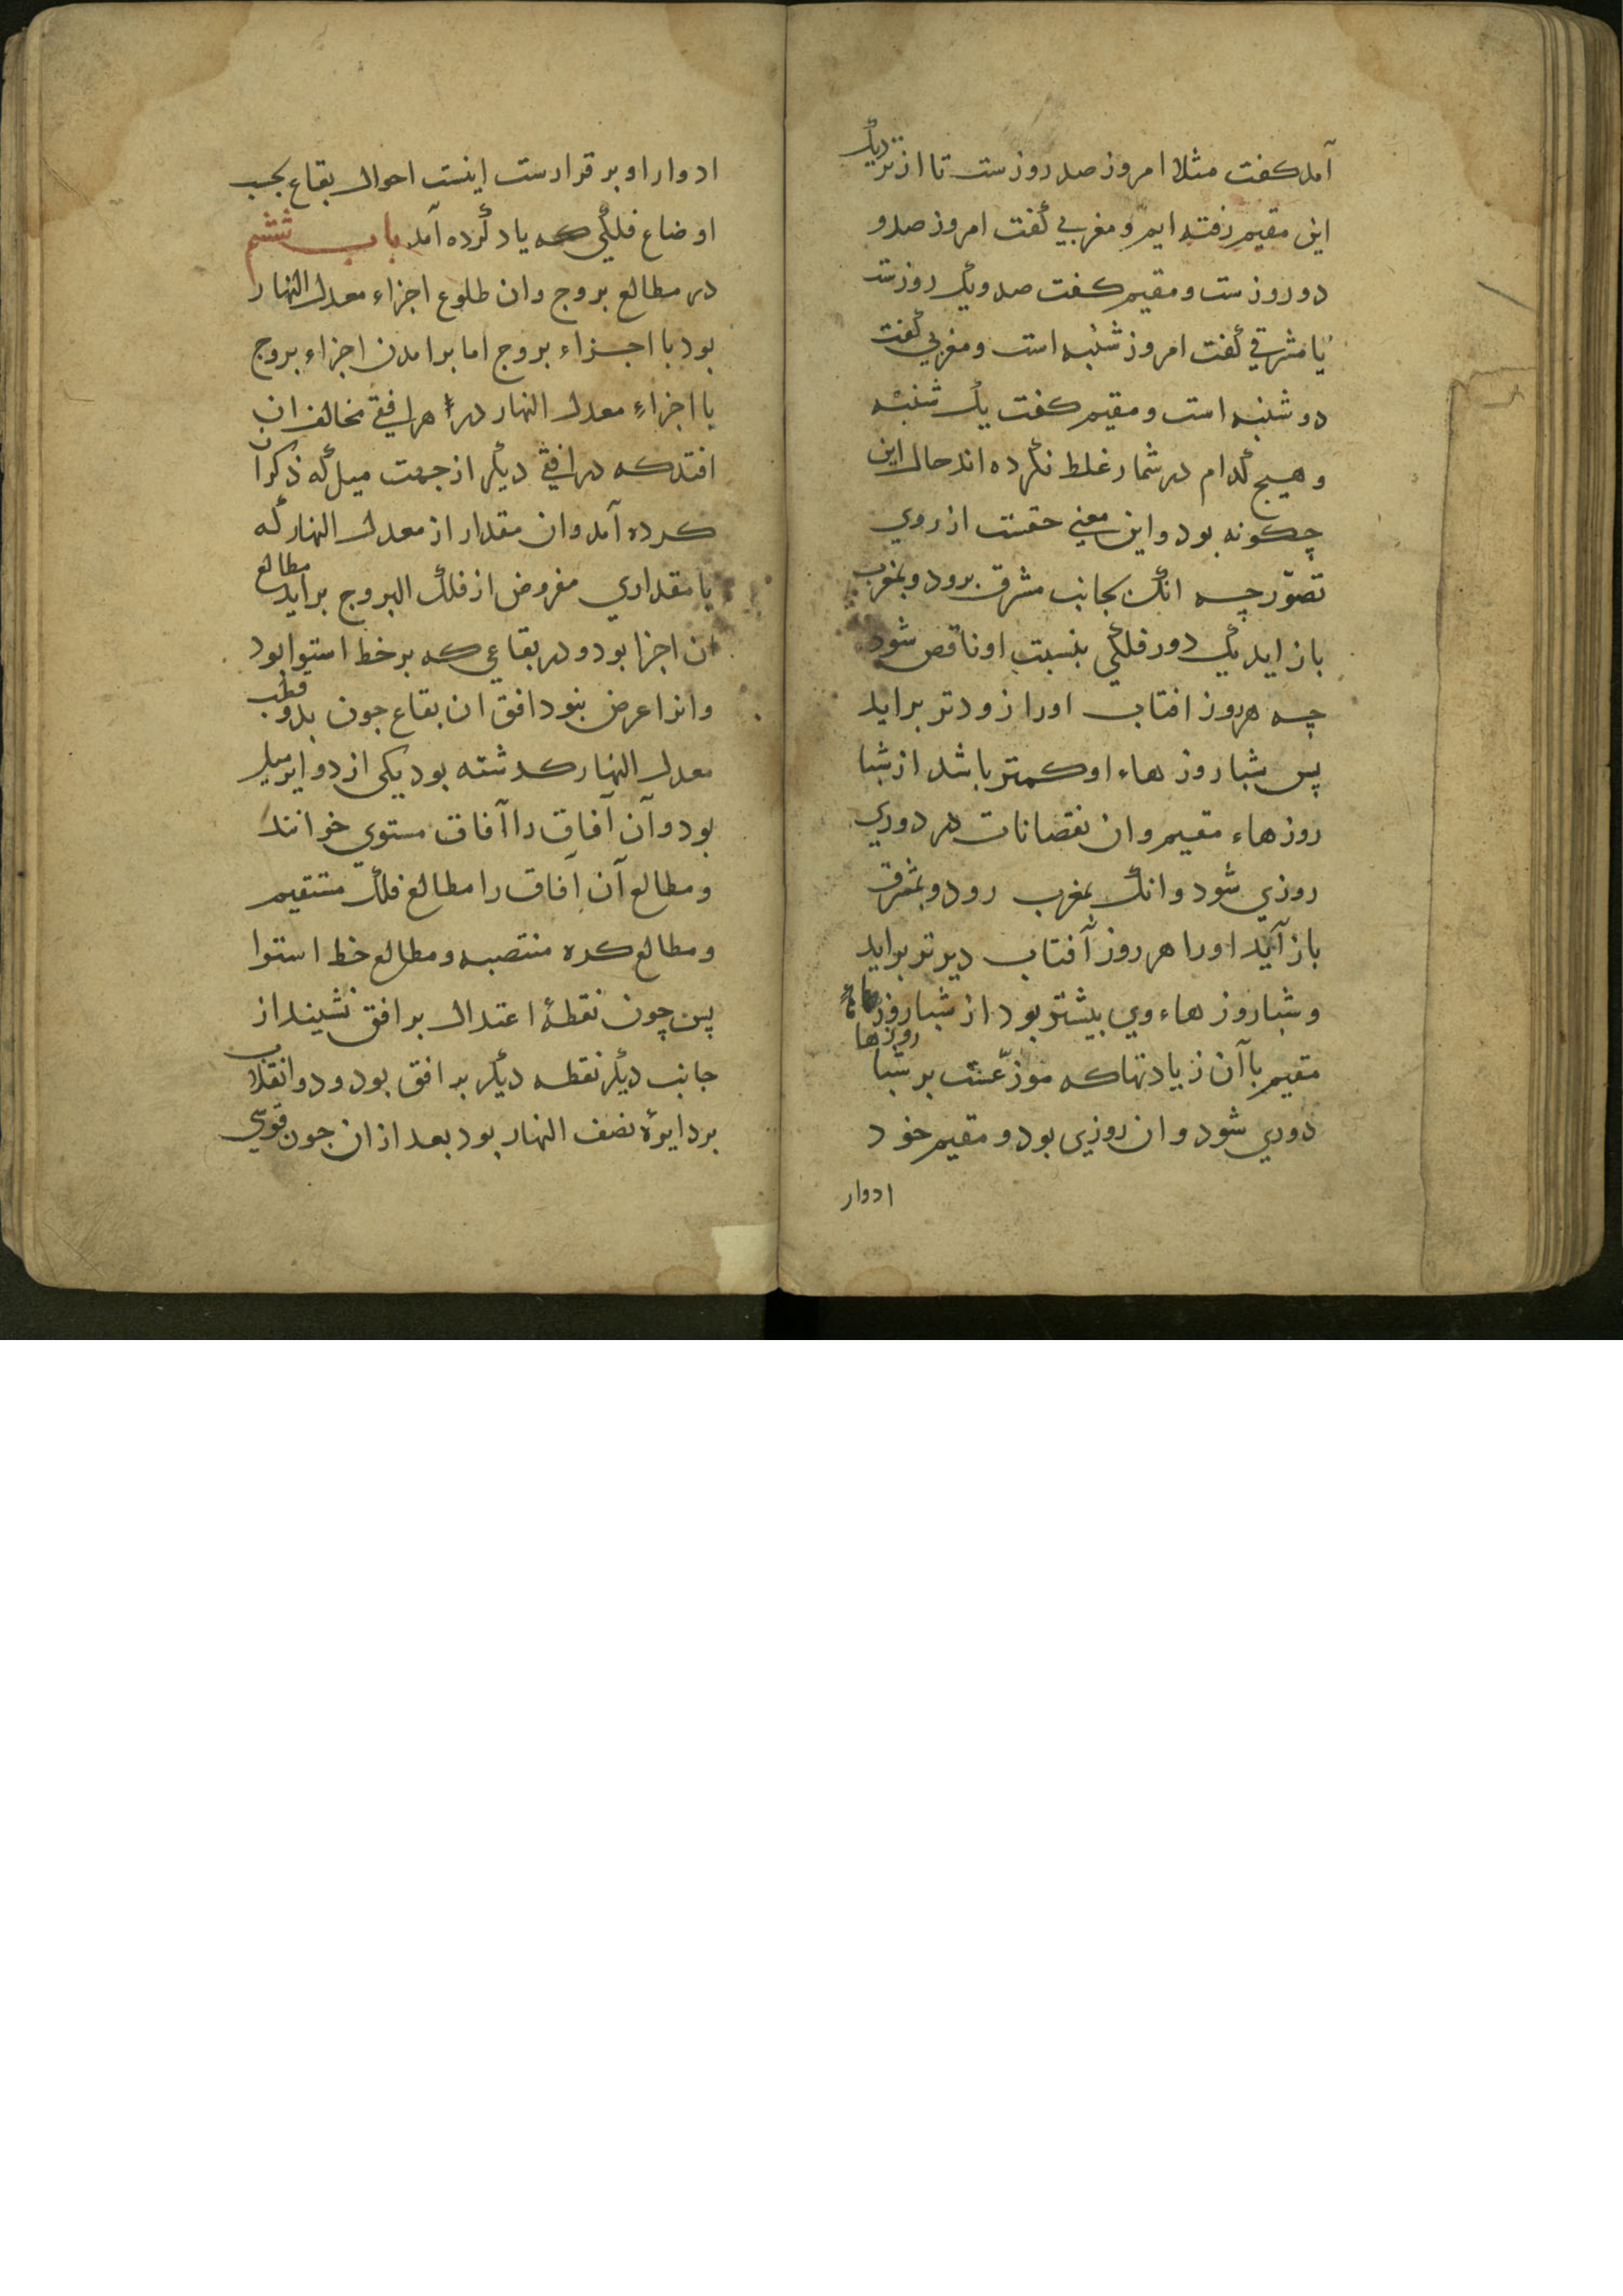 آمد کفت مثلا امروز صد روزست تا از نزدیک
این مقیم رفته ایم و مغربی گفت امروز صد و
دو روزست و مقیم کفت صد و یک روزست
یا مشرقی گفت امروز شنبه است و مغربی گفت
دو شنبه است و مقیم کفت یک شنبه
و هیچ کدام در شمار غلط نکرده اند حال این
چکونه بود و این معنی حقست از روی
تصوّر چه انک بجانب مشرق برود و بمغرب
باز اید یک دور فلکی بنسبت او ناقص شود
چه هر روز افتاب اورا زودتر براید
پس شباروز هاء او کمتر باشد از شبا
روز هاء مقیم و ان نقصانات در دوری
روزی شود و انک بمغرب رود و بمشرق
باز آید اورا هر روز آفتاب دیرتر براید
و شباروز هاء وی بیشتر بود از شباروز هاء
مقیم با آن زیادتها که موزّعست بر شبا روزها
دوری شود و ان روزی بود و مقیم خود
ادوار
ادوار او بر قرارست اینست احوال بقاع بحسب
اوضاع فلکی که یاد کرده آمد باب ششم
در مطالع بروج و ان طلوع اجزاء معدل النهار
بود با اجزاء بروج اما برامدن اجزاء بروج
با اجزاء معدل النهار در هر افقی مخالف ان
افتد که در افقی دیگر از جهت میل که ذکر ان
کرده آمد و ان مقدار از معدل النهار که
با مقداری مفروض از فلک البروج براید مطالع
ان اجزا بود و در بقاعی که بر خط استوا بود
وانرا عرض نبود افق ان بقاع جون بدو قطب
معدل النهار کذشته بود یکی از دوایر میل
بود و آن آفاق را آفاق مستوی خوانند
و مطالع آن آفاق را مطالع فلک مستقیم
و مطالع کره منتصبه و مطالع خط استوا
پس چون نقطۀ اعتدال بر افق نشیند از
جانب دیگر نقطه دیگر به افق بود و دو انقلاب
بر دایرۀ نصف النهار بود بعد از ان جون قوسی